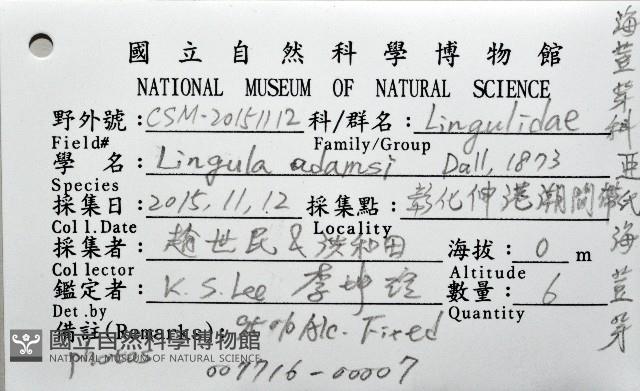 國立自然科學博物館
NATIONAL MUSEUM OF NATURAL SCIENCE
野外號：CSM-20151112 科/群名：Lingulidae
Field# Family/Group
學名：Lingula adamsi Dall, 1873
Species
採集日：2015, 11, 12 採集點：彰化伸港潮間帶
Coll.Date Locality
採集者：趙世民 & 洪和田 海拔：0 m
Collector Altitude
鑑定者：K.S.Lee 李坤瑄 數量：6
Det.by Quantity
備註(Remarks)：95% Alc. Fixed
國立自然科學博物館
NATIONAL MUSEUM OF NATURAL SCIENCE
007716-00007
海荳芽科 亞氏海荳芽